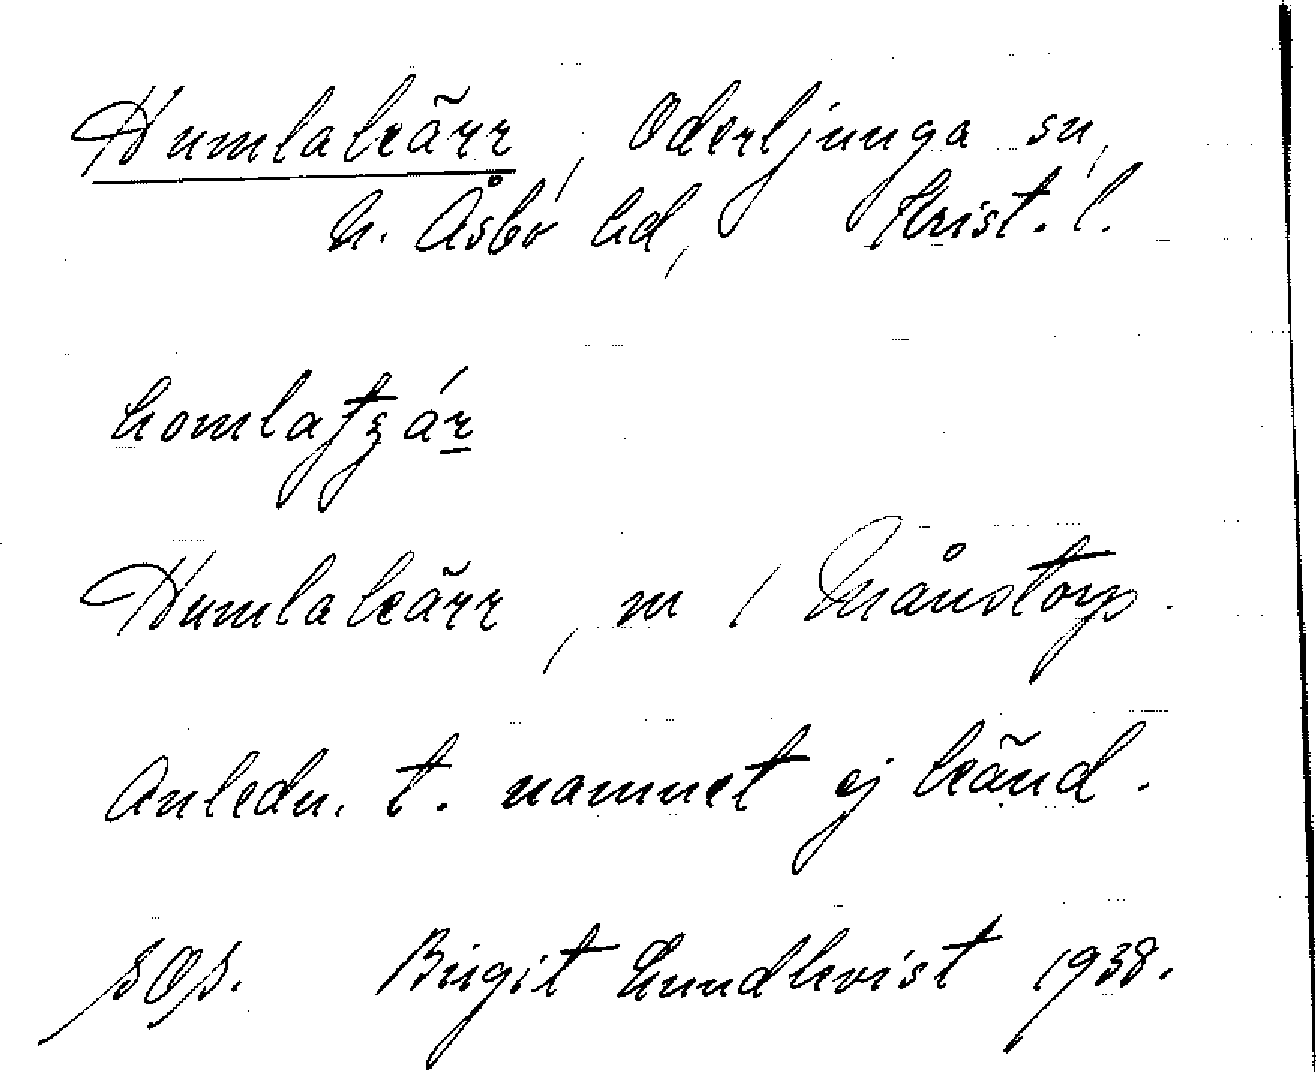 Humlakärr, Oderljunga sn,
N. Åsbo hd, Krist. l.
Humlakärr, m / Månstorp.
Anledn. t. namnet ej känd.
Birgit Lundkvist 1938.